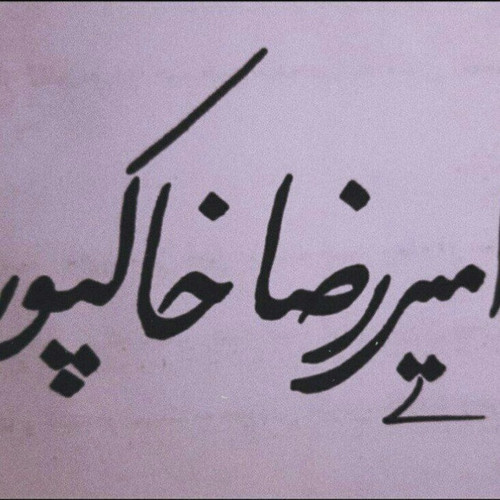 امیررضا خاکپور